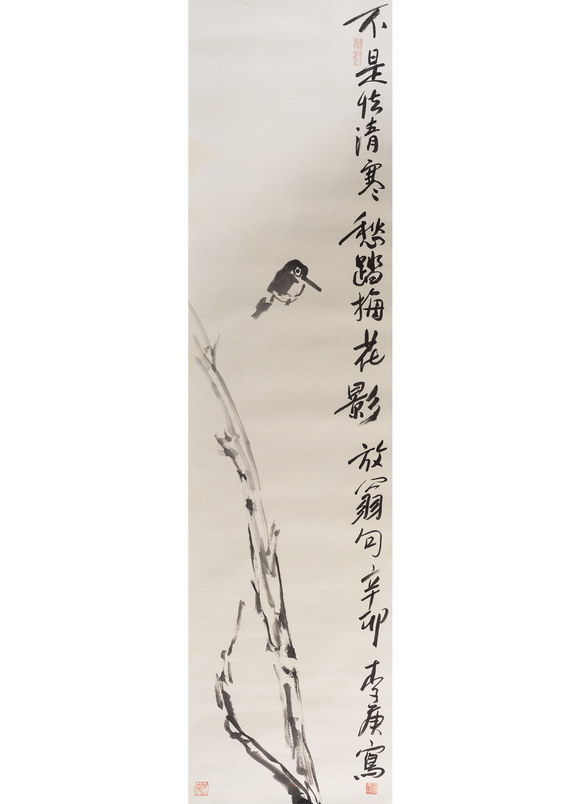 不是怯清寒愁踏梅花影放翁句辛卯李庚寫